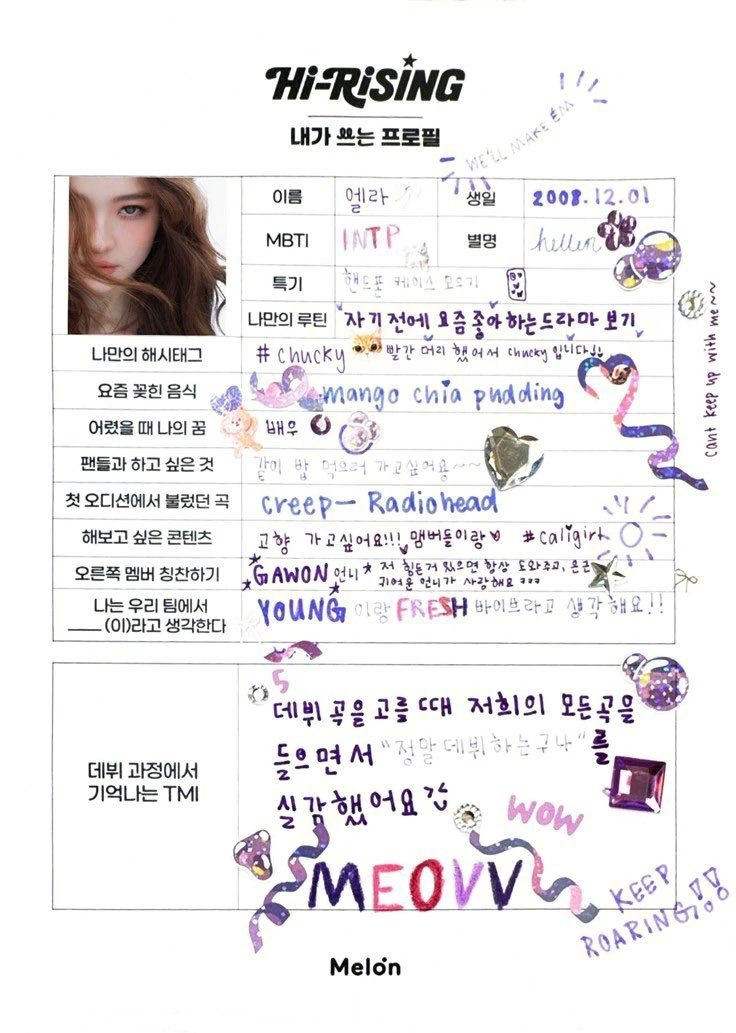 Hi-RiSiNG
내가 쓰는 프로필
WE'LL MAKE EM
이름 엘라 생일 2008.12.01
MBTI INTP 별명 hellen
특기 핸드폰 케이스 모으기
나만의 루틴 자기 전에 요즘 좋아하는 드라마 보기
나만의 해시태그 #chucky 빨간 머리 했어서 chucky 입니다!!
요즘 꽂힌 음식 mango chia pudding
어렸을 때 나의 꿈 배우
팬들과 하고 싶은 것 같이 밥 먹으러 가고싶어용~~
첫 오디션에서 불렀던 곡 creep - Radiohead
해보고 싶은 콘텐츠 고향 가고싶어요!!! 멤버들이랑♡ #caligirl
오른쪽 멤버 칭찬하기 GAWON 언니* 저 힘든거 있으면 항상 도와주고, 은근
귀여운 언니가 사랑해요 ㅋㅋㅋ
나는 우리 팀에서
____ (이)라고 생각한다 YOUNG 이랑 FRESH 바이브라고 생각해요!!
cant keep up with me~~
데뷔 과정에서
기억나는 TMI
5
데뷔 곡을 고를 때 저희의 모든곡을
들으면서 "정말 데뷔하는구나"를
실감했어요
WOW
MEOVV
KEEP
ROARING!!
Melon